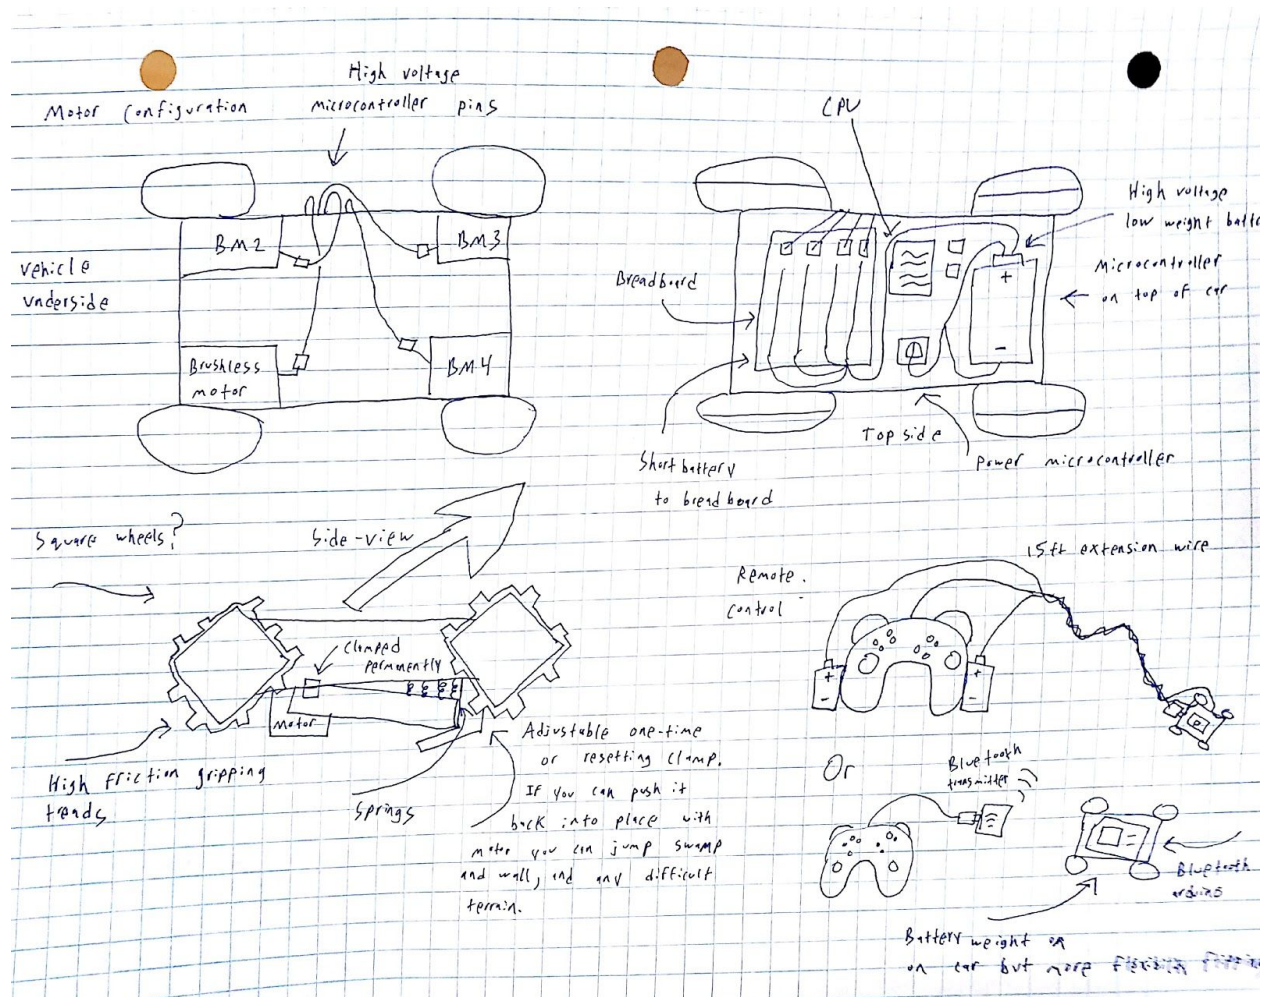 High voltage
microcontroller pins
Motor Configuration
BM2
BM3
vehicle
underside
Brushless
motor
BM4
CPU
High voltage
low weight
Microcontroller
on top of car
Breadboard
+
-
Top side
Power microcontroller
Short battery
to breadboard
Square wheels?
Side-view
Clamped
permanently
Motor
High friction gripping
treads
Springs
Adjustable one-time
or resetting clamp.
If you can push it
back into place with
motor you can jump swamp
and wall, and any difficult
terrain.
15ft extension wire
Remote
control
+
-
+
-
Or
Bluetooth
transmitter
Bluetooth
arduino
Battery weight on
on car but more